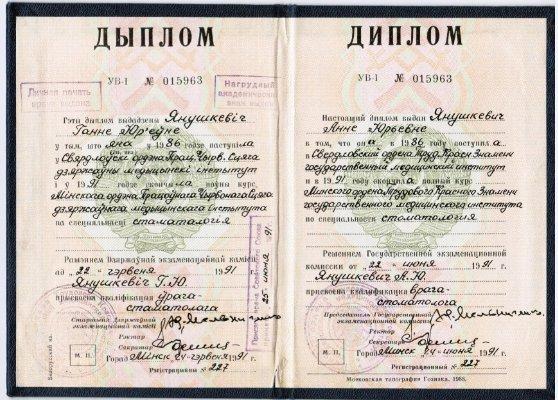 ДЫПЛОМ
УВ-I № 015963
Личная печать
врача выдана
Нагрудный
академический
знак выдан
Гэты дыплом выдадзены Янушкевіч
Ганне Юр'еўне
у тым, што яна у 1986 годзе паступіла
у Свярдлоўскі ордэна Прац. Чырв. Сцяга
дзяржаўны медыцынскі інстытут
і ў 1991 годзе скончыла поўны курс
Мінскага ордэна Працоўнага Чырвонага Сцяга
дзяржаўнага медыцынскага інстытута
па спецыяльнасці стаматалогія
Рашэннем Дзяржаўнай экзаменацыйнай камісіі
ад „22“ чэрвеня 1991 г.
Янушкевіч Г.Ю.
прысвоена кваліфікацыя урача-
стаматолага
Старшыня Дзяржаўнай
экзаменацыйнай камісіі
Рэктар
Сакратар
М. П.
Горад Мінск 24 чэрвеня 1991 г.
Рэгістрацыйны № 227
25 июня 1991
ДИПЛОМ
УВ-I № 015963
Настоящий диплом выдан Янушкевич
Анне Юрьевне
в том, что она в 1986 году поступила
в Свердловский ордена Труд. Красн. Знамени
государственный медицинский институт
и в 1991 году окончила полный курс
Минского ордена Трудового Красного Знамени
государственного медицинского института
по специальности стоматология
Решением Государственной экзаменационной
комиссии от „22“ июня 1991 г.
Янушкевич А.Ю.
присвоена квалификация врача-
стоматолога
Председатель Государственной
экзаменационной комиссии
Ректор
Секретарь
М. П.
Город Минск 24 июня 1991 г.
Регистрационный № 227
Московская типография Гознака. 1988.